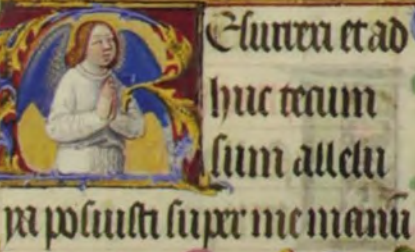 Resurrexi et ad
huc tecum
sum allelu
ya posuisti super me manū